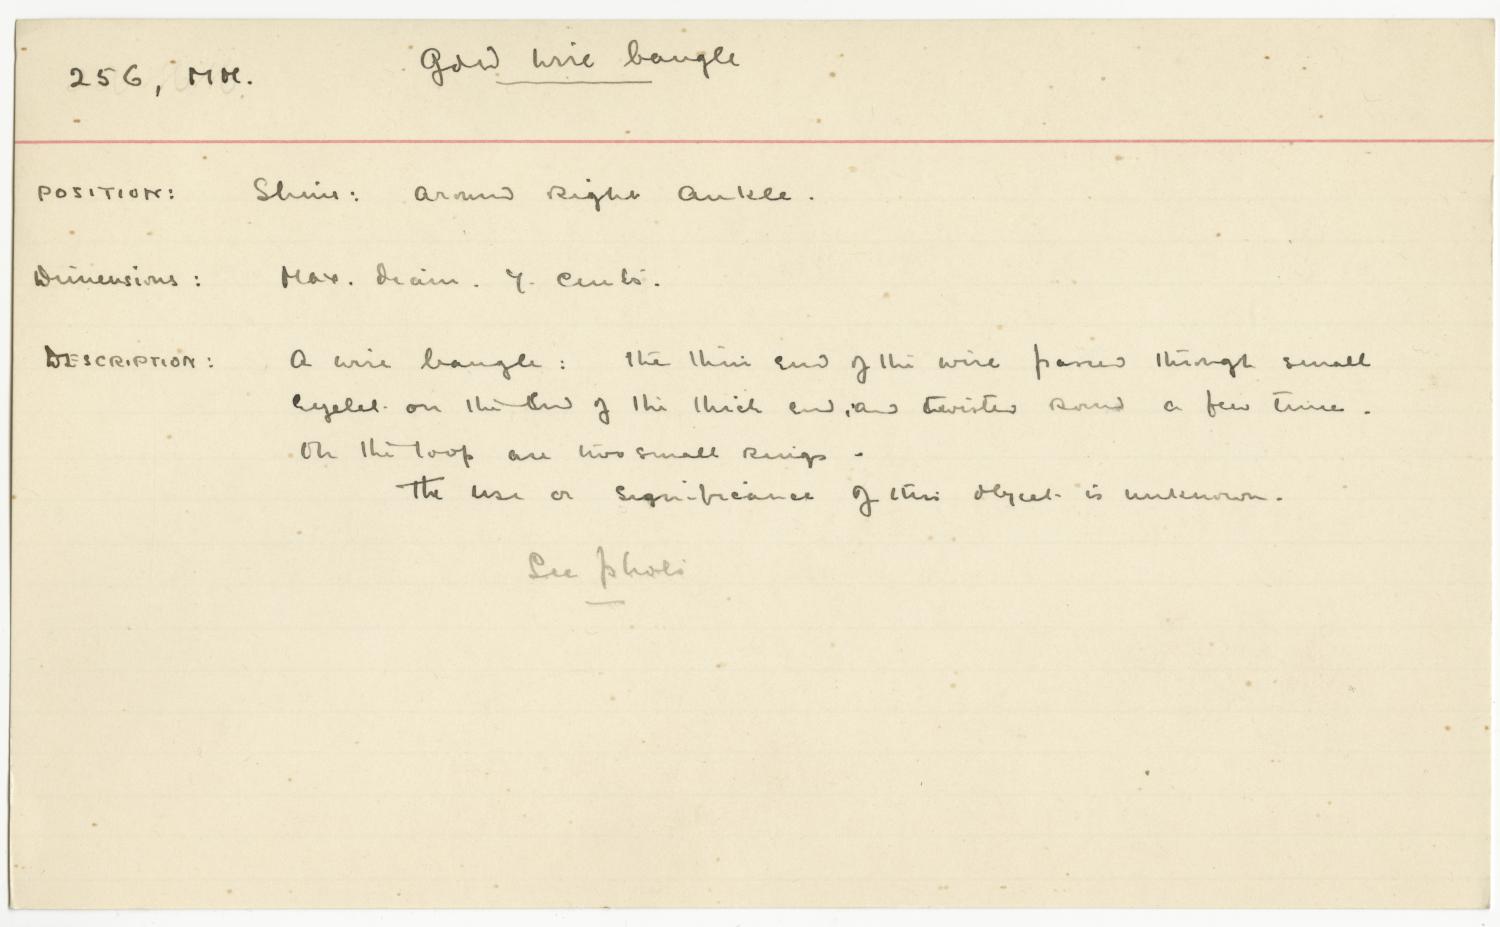 256, MM.
Gold wire bangle
POSITION: Shins: around right ankle.
Dimensions: Max. diam. 7. cents.
DESCRIPTION: A wire bangle: the thin end of the wire passed through small
eyelet on the end of the thick end, and twisted round a few time.
On the loop are two small rings.
The use or significance of this object is unknown.
See photo